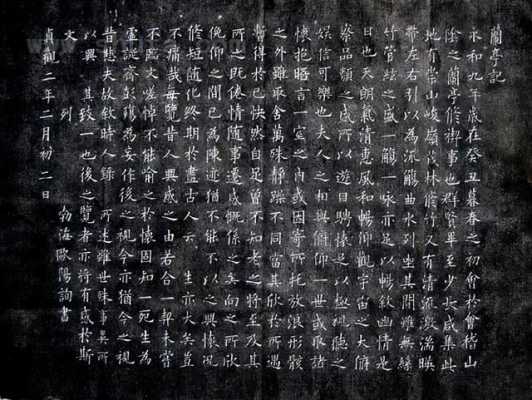 蘭亭記
永和九年歲在癸丑暮春之初會於會稽山
陰之蘭亭脩禊事也群賢畢至少長咸集此
地有崇山峻嶺茂林脩竹又有清流激湍暎
帶左右引以為流觴曲水列坐其間雖無絲
竹管絃之盛一觴一詠亦足以暢敘幽情是
日也天朗氣清惠風和暢仰觀宇宙之大俯
察品類之盛所以遊目騁懷足以極視聽之
娛信可樂也夫人之相與俯仰一世或取諸
懷抱晤言一室之內或因寄所托放浪形骸
之外雖取舍萬殊靜躁不同當其欣於所遇
暫得於己快然自足曾不知老之將至及其
所之既倦情隨事遷感慨係之矣向之所欣
俛仰之間已為陳迹猶不能不以之興懷況
脩短隨化終期於盡古人云 生亦大矣豈
不痛哉每覽昔人興感之由若合一契未嘗
不臨文嗟悼不能喻之於懷固知一死生為
虛誕齊彭殤為妄作後之視今亦猶今之視
昔悲夫故敘時人錄 所述雖世殊事異所
以興 其致一也後之覽者亦將有感於斯
文 列 勃海歐陽詢書
貞觀二年二月初二日